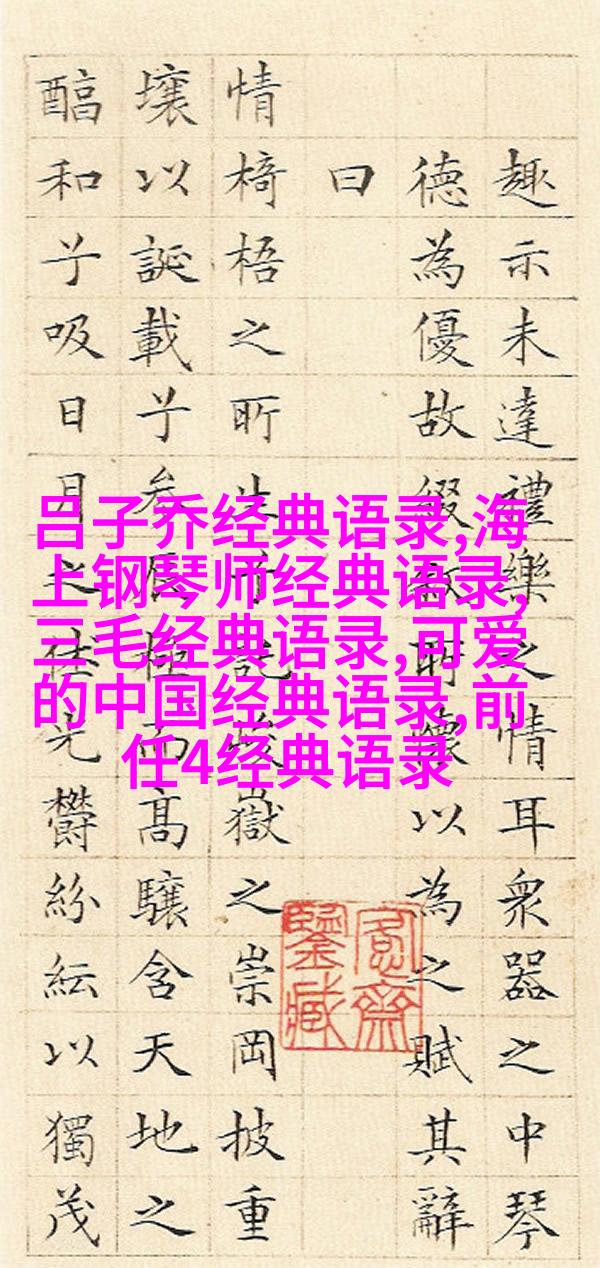 趣示未達禮樂之情耳衆器之中琴
德為優故綴敘所懷以為之賦其辭
曰
情椅梧之所生兮託峻嶽之崇岡披重
壤以誕載兮參辰極而高驤含天地之
醕和兮吸日月之休光鬱紛紜以獨茂
吕子乔经典语录,海
上钢琴师经典语录,
三毛经典语录,可爱
的中国经典语录,前
任4经典语录
愙齋
鑒藏